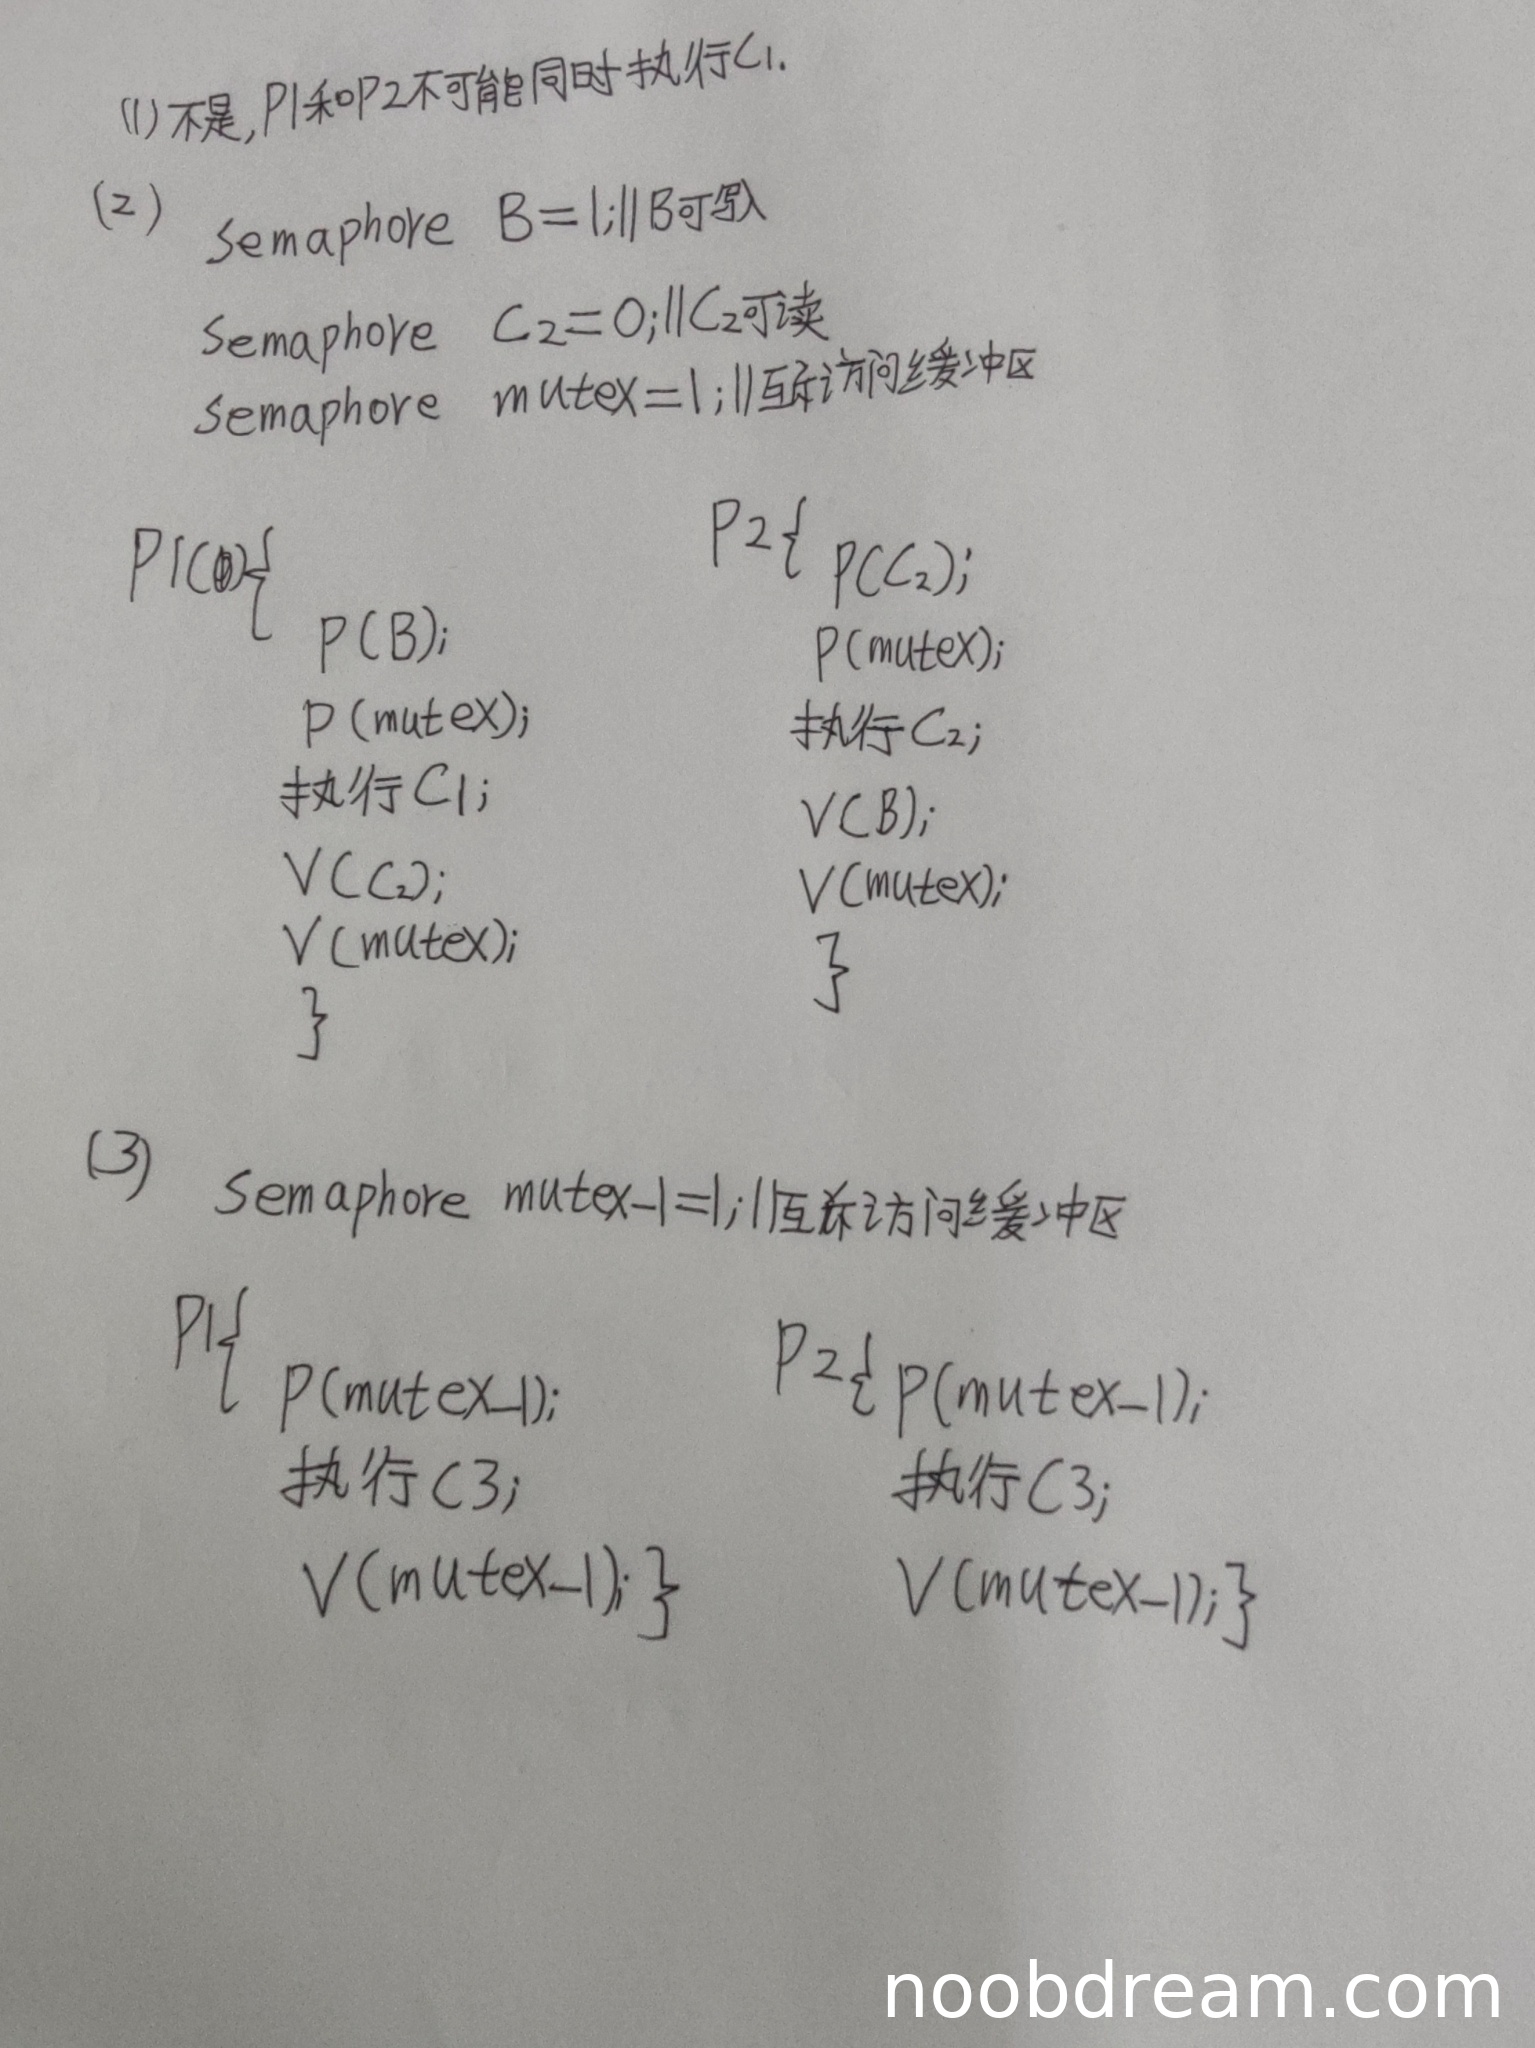 (1)不是,P1和P2不可能同时执行C1.
(2)
Semaphore B=1;//B可写入
Semaphore C2=0;//C2可读
Semaphore mutex=1;//互斥访问缓冲区
P1(){
P(B);
P(mutex);
执行C1;
V(C2);
V(mutex);
}
P2{
P(C2);
P(mutex);
执行C2;
V(B);
V(mutex);
}
(3)
Semaphore mutex-1=1;//互斥访问缓冲区
P1{
P(mutex-1);
执行C3;
V(mutex-1);}
P2{P(mutex-1);
执行C3;
V(mutex-1);}
noobdream.com